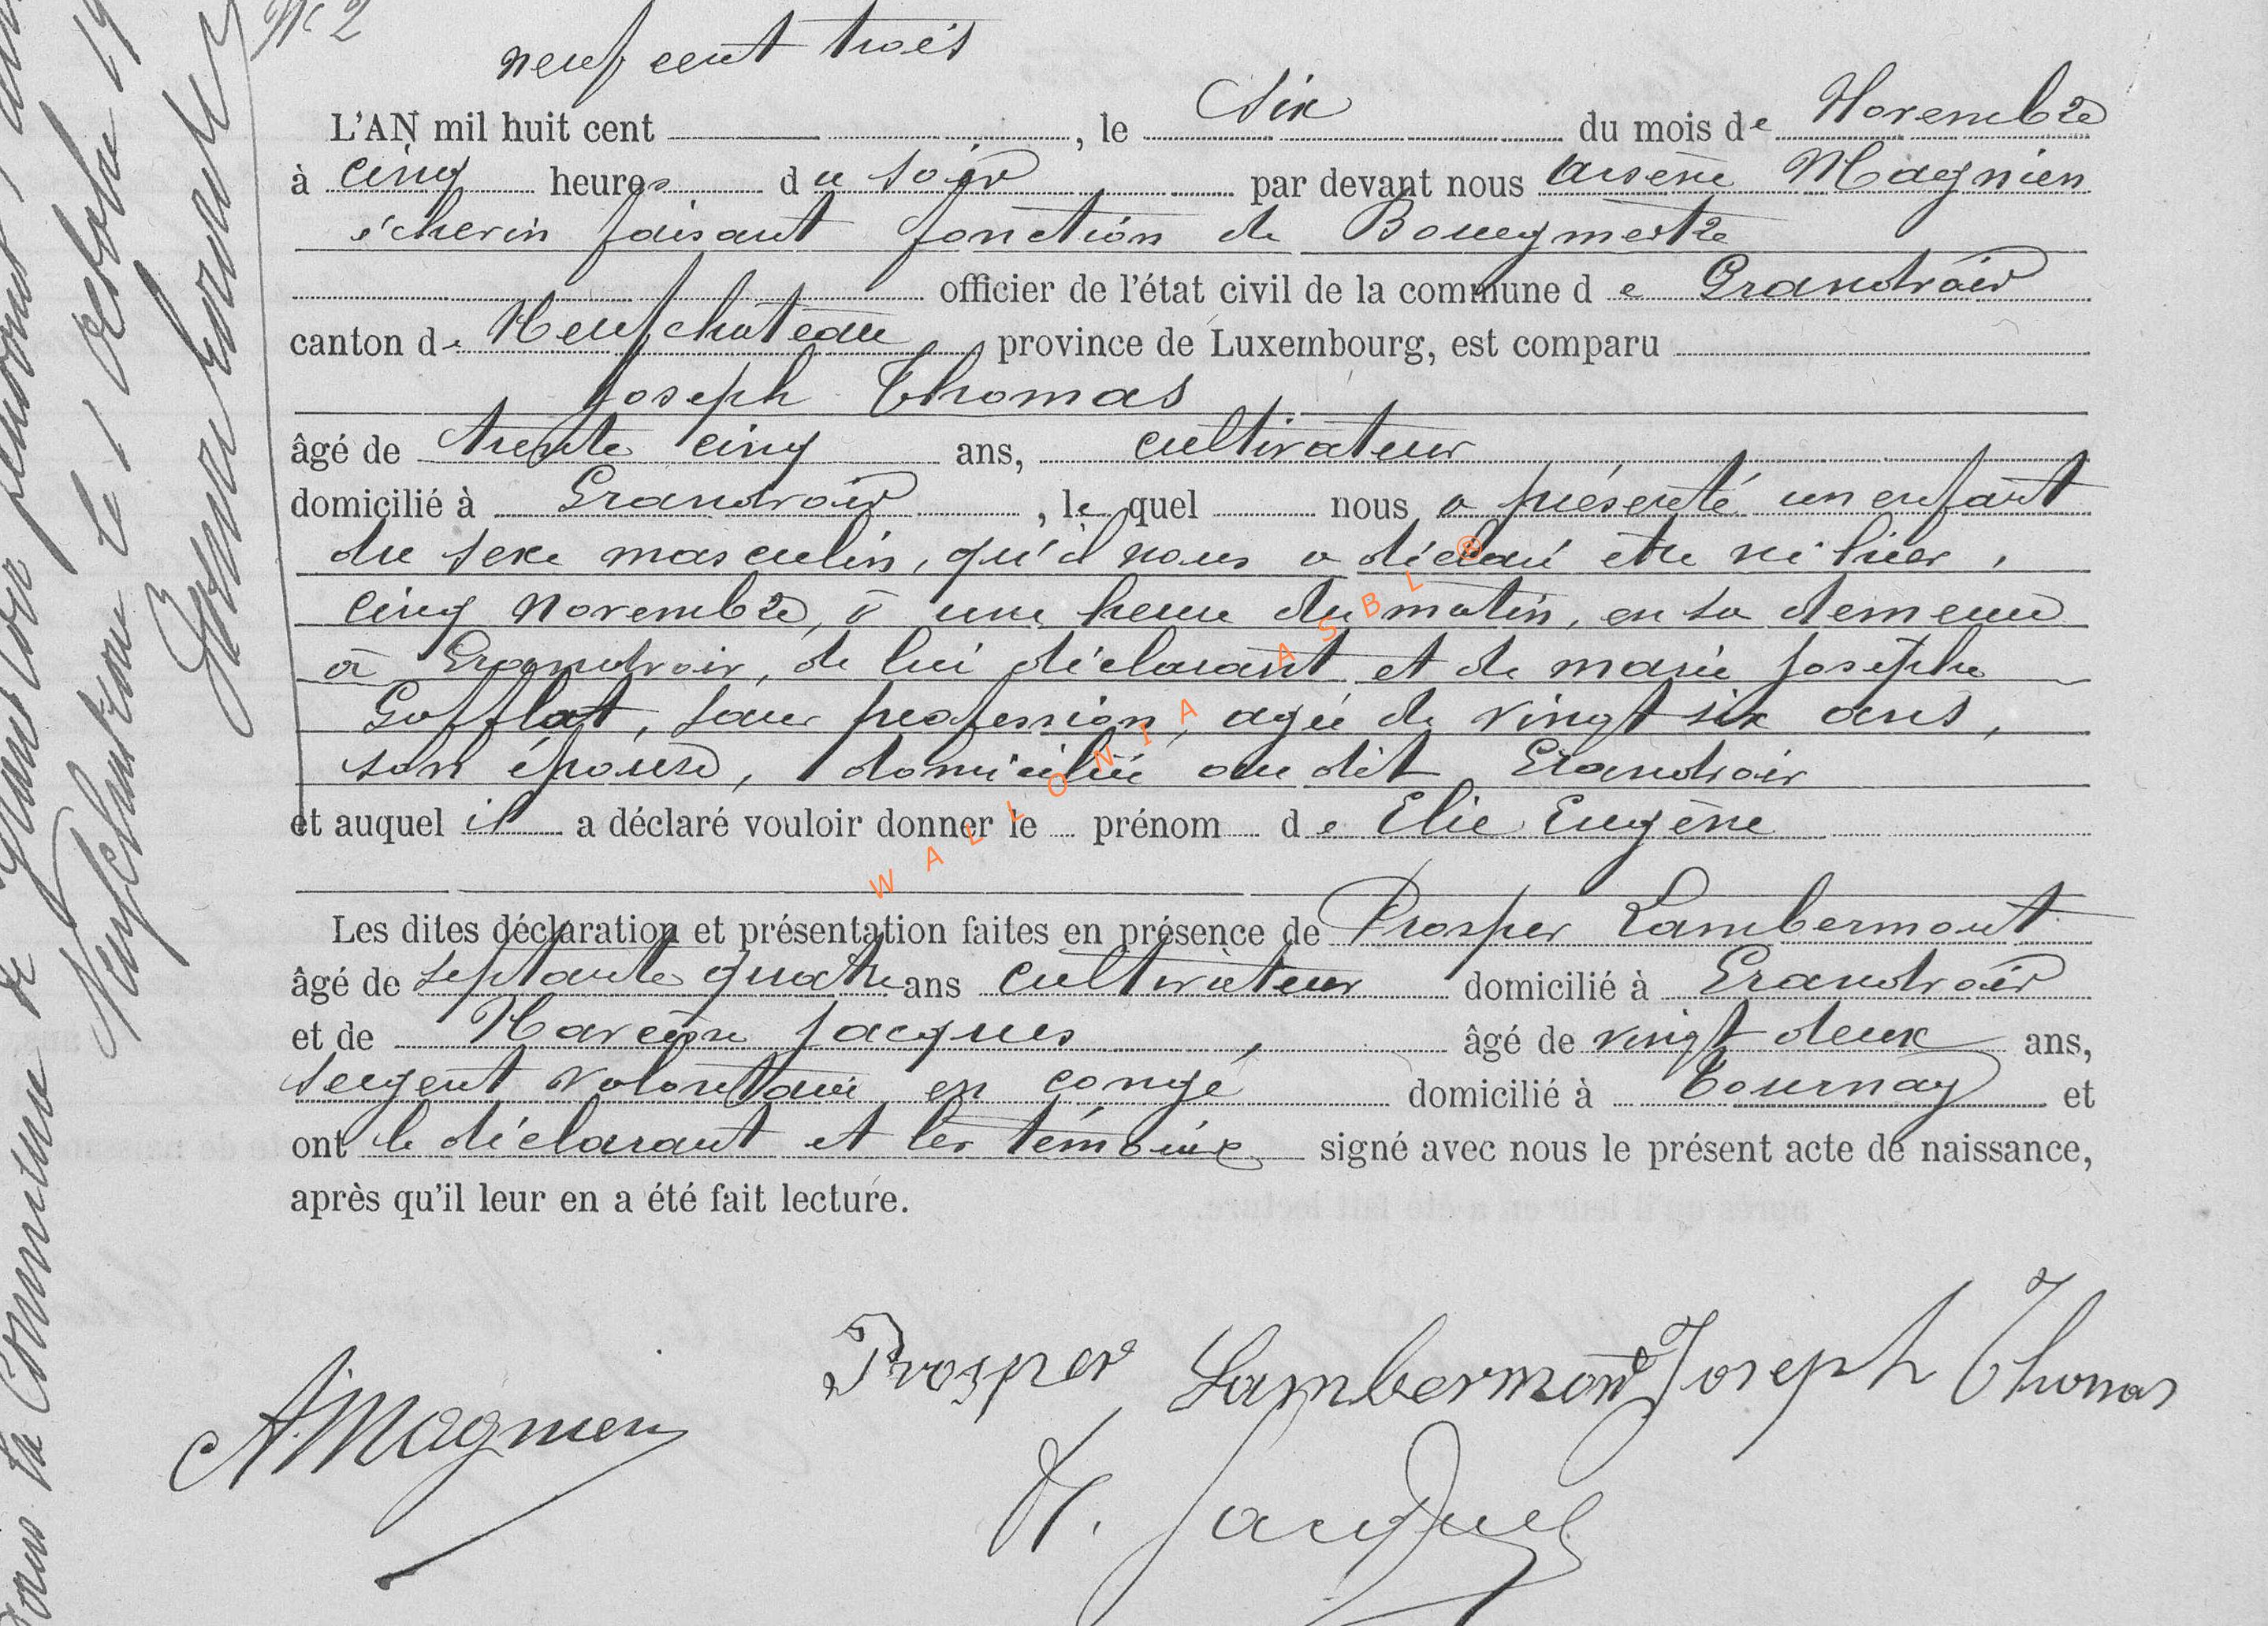 N° 2
neuf cent trois
L'AN mil huit cent , le Six du mois de Novembre
à cinq heures du soir par devant nous Arsène Magnien
échevin faisant fonction de Bourgmestre
officier de l'état civil de la commune de Grandvoir
canton de Neufchateau province de Luxembourg, est comparu
Joseph Thomas
âgé de trente cinq ans, cultivateur
domicilié à Grandvoir , lequel nous a présenté un enfant
du sexe masculin, qu'il nous a déclaré être né hier,
cinq Novembre, à une heure du matin, en sa demeure
à Grandvoir, de lui déclarant et de marie josèphe
Gofflot, sans profession, agée de vingt six ans,
son épouse, domiciliée au dit Grandvoir
et auquel il a déclaré vouloir donner le prénom de Elie Eugène
Les dites déclaration et présentation faites en présence de Prosper Lambermont
âgé de septante quatre ans cultivateur domicilié à Grandvoir
et de Jacques , âgé de vingt deux ans,
sergent volontaire en congé domicilié à Tournay et
ont le déclarant et les témoins signé avec nous le présent acte de naissance,
après qu'il leur en a été fait lecture.
Prosper Lambermont Joseph Thomas
A. Magnien
Jacques
WALLONIA ASBL ®
dans la Commune de
Neufchateau le 1 octobre 19